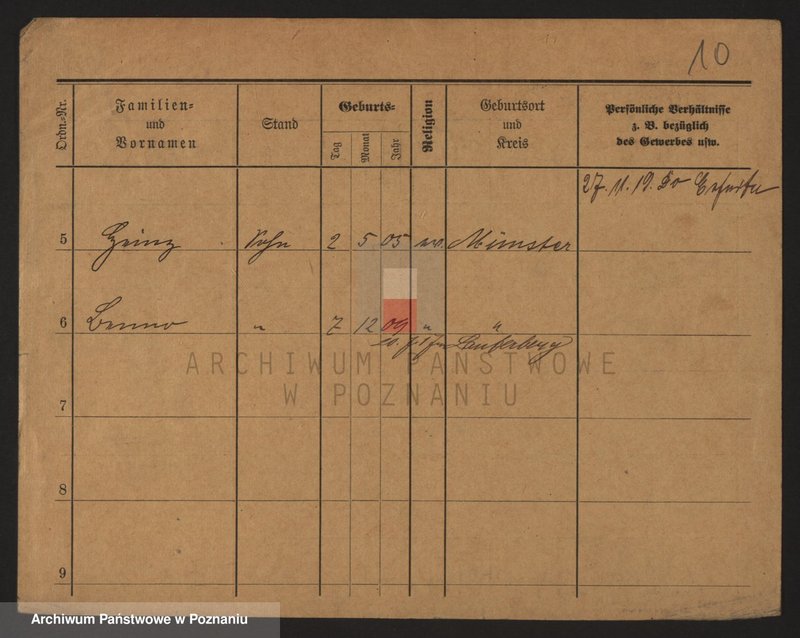 10
Ordn.-Nr.
Familien-
und
Vornamen
Stand
Geburts-
Tag
Monat
Jahr
Religion
Geburtsort
und
Kreis
Persönliche Verhältnisse
z. B. bezüglich
des Gewerbes usw.
27. 11. 19.
5 Heinz Sohn 2 5 05 ev. Münster
6 Benno " 7 12 09 " "
ARCHIWUM PAŃSTWOWE
W POZNANIU
7
8
9
Archiwum Państwowe w Poznaniu